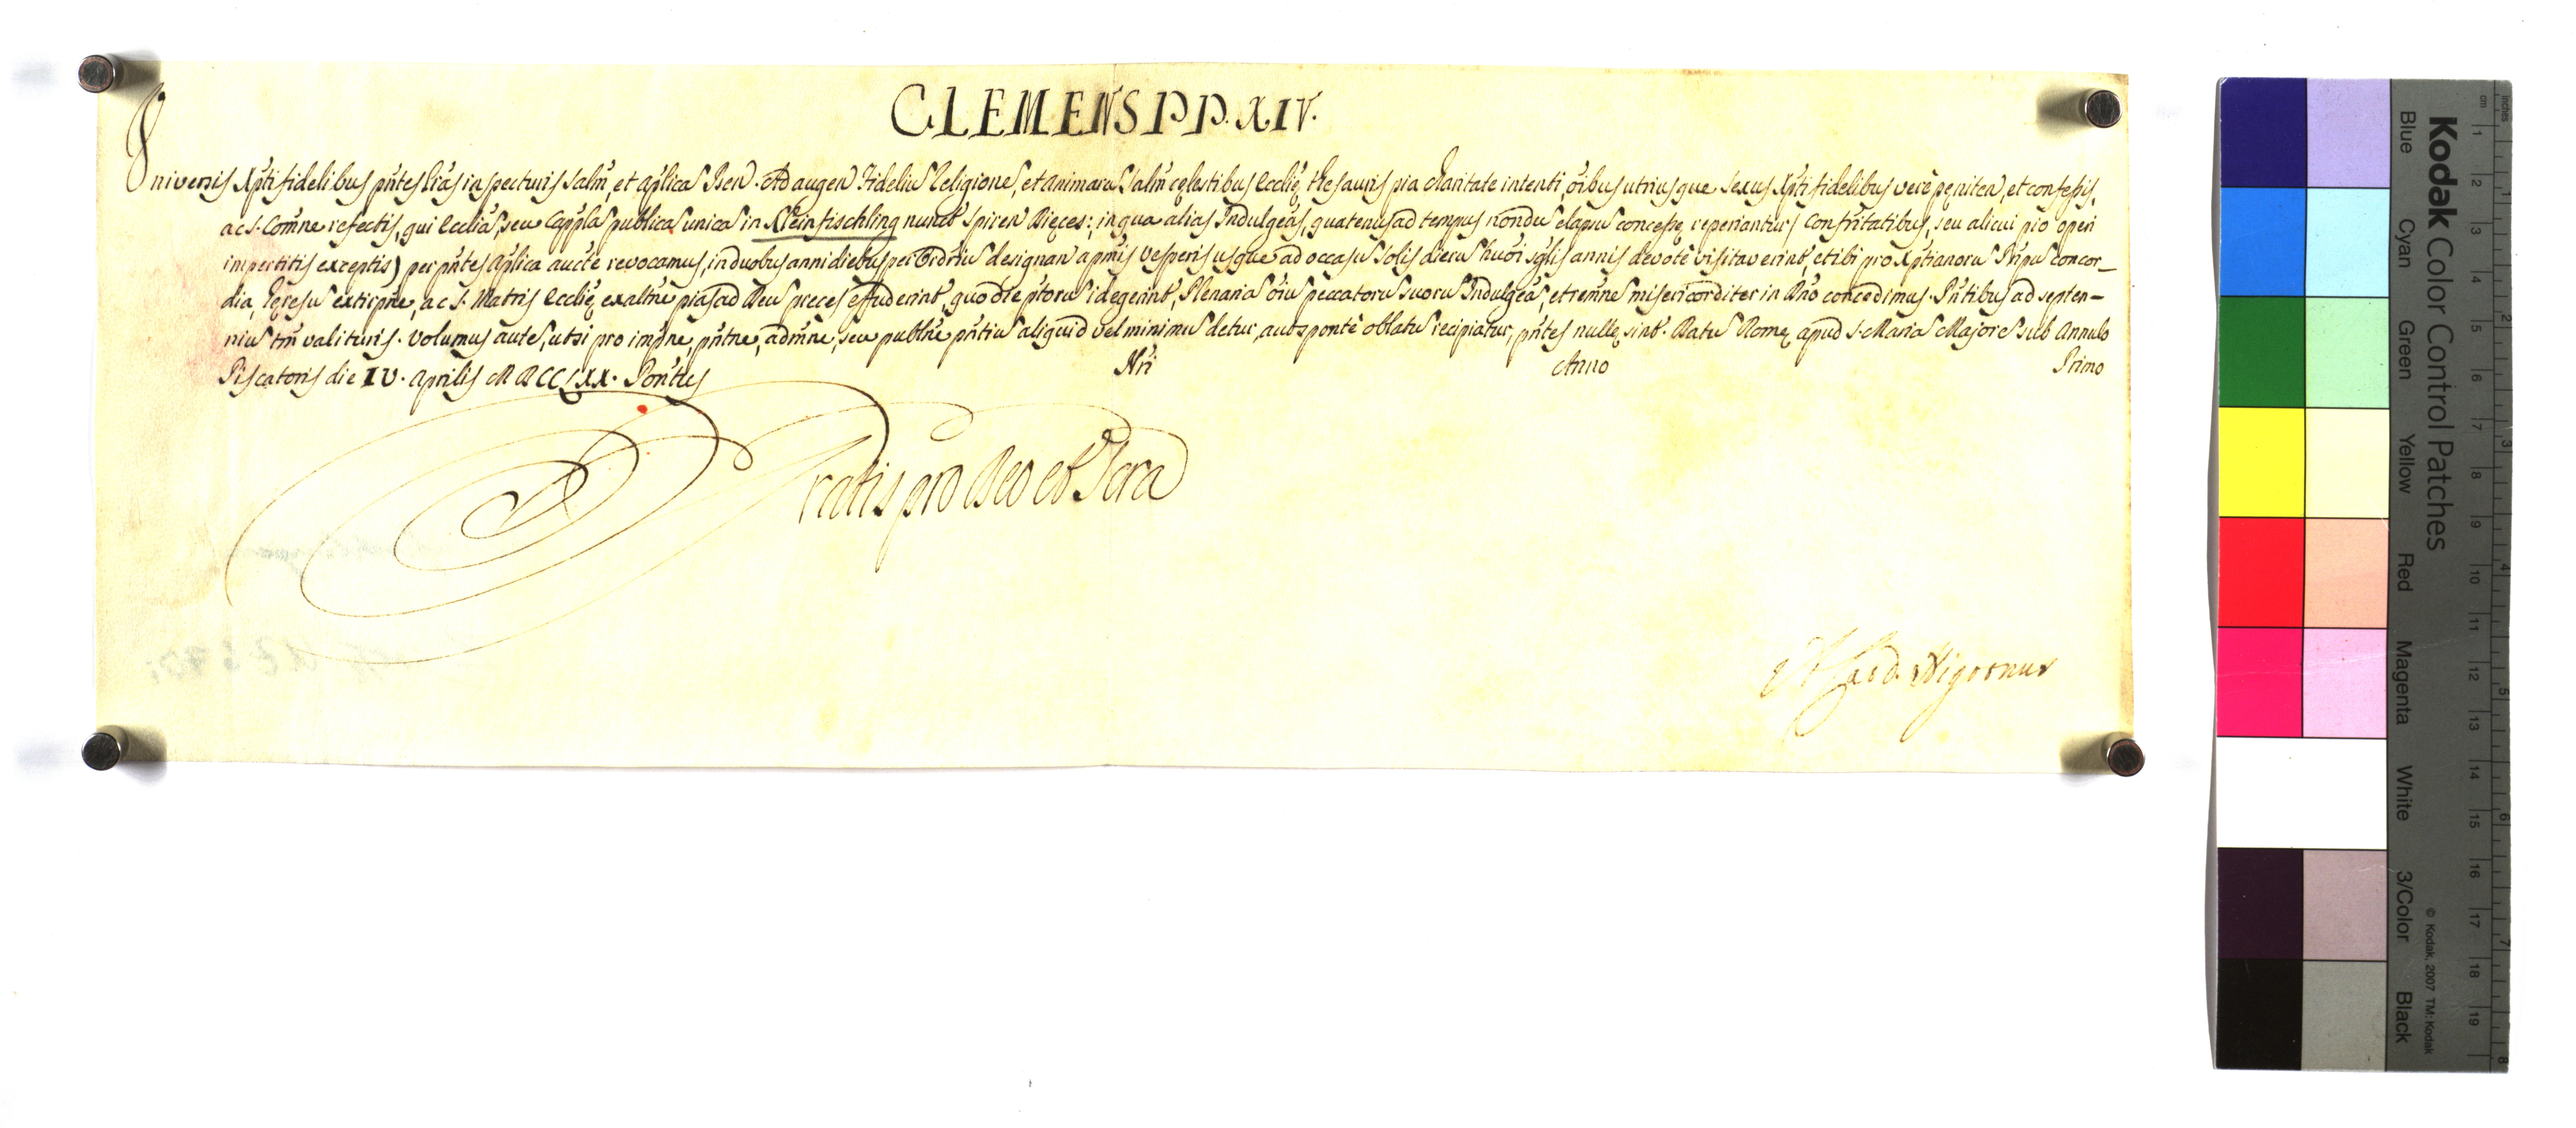 CLEMENS PP. XIV.
Universis Xpti fidelibus pntes Lras inspecturis Salm, et aplica Ben. Ad augen Fideliu Religione, et Animaru Salm cęlestibus Ecclię thesauris pia charitate intenti, oibus utriusque sexus Xpti fidelibus verè pęniten, et confessis,
ac S. Comne refectis, qui Ecclia, seu Cappla publica unica in Kleinfischling nuncŧ Spiren Dięces: in qua alias Indulgeas, quatenus ad tempus nondu elapsu concessę reperiantur (Confritatibus, seu alicui pio operi
impertitis exceptis) per pntes aplica aucte revocamus, in duobus anni diebus per Ordriu designan a pmis Vesperis usque ad occasu Solis dieru huoi sglis annis devotè visitaverint, et ibi pro Xptianoru Pripu concor_
dia, hęresu extirpne, ac S. Matris Ecclię exaltne pias ad Deu preces effuderint, quo die ptoru id egerint, Plenaria oiu peccatoru suoru Indulgea, et remne misericorditer in Dno concedimus. Pntibus ad septen-
niu tm valituris. Volumus aute, ut si pro impne, pntne, admne, seu publne pntiu aliquid vel minimu detur, aut sponte oblatu recipiatur, pntes nullę sint. Datu Romę apud S. Maria Majore sub Annulo
Piscatoris die IV. Aprilis MDCCLXX. Pontus Nri Anno Primo
Gratis pro Deo et Scra
A. Card. Nigronus
Kodak Color Control Patches
Blue Cyan Green Yellow Red Magenta White 3/Color Black
© Kodak, 2007 TM: Kodak
cm 1 2 3 4 5 6 7 8 9 10 11 12 13 14 15 16 17 18 19
inches 1 2 3 4 5 6 7 8